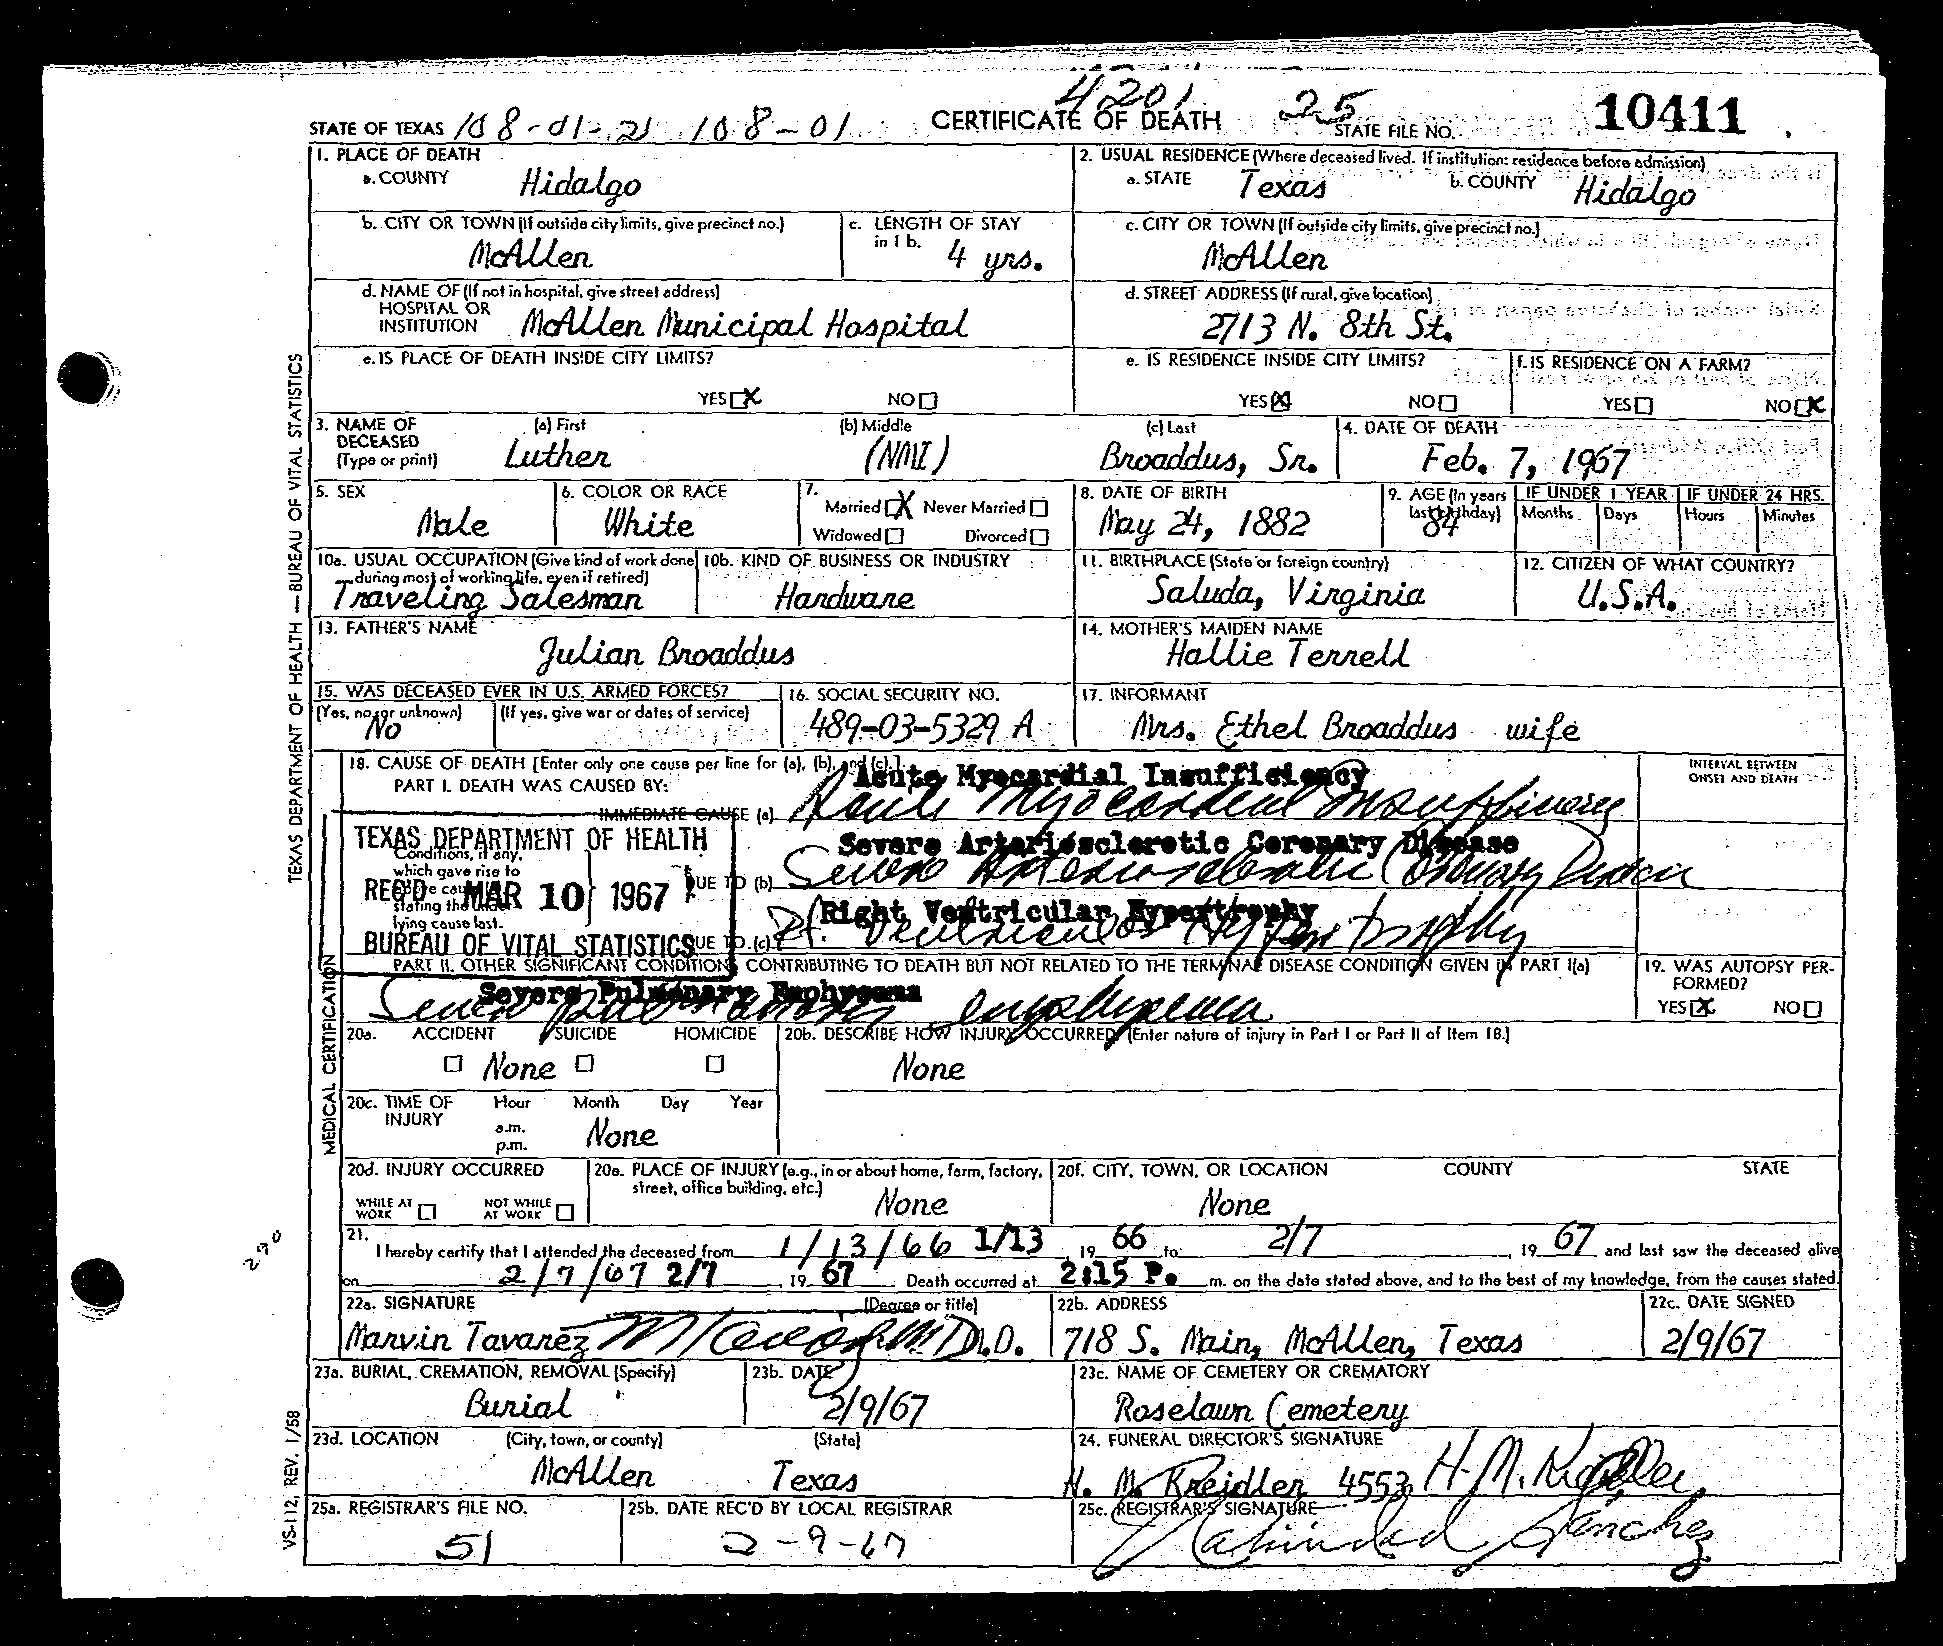 4201
STATE OF TEXAS 108-01-21 108-01 CERTIFICATE OF DEATH 25 STATE FILE NO. 10411
1. PLACE OF DEATH
a. COUNTY Hidalgo
2. USUAL RESIDENCE (Where deceased lived. If institution: residence before admission)
a. STATE Texas b. COUNTY Hidalgo
b. CITY OR TOWN (If outside city limits, give precinct no.)
McAllen
c. LENGTH OF STAY
in 1 b. 4 yrs.
c. CITY OR TOWN (If outside city limits, give precinct no.)
McAllen
d. NAME OF (If not in hospital, give street address)
HOSPITAL OR
INSTITUTION McAllen Municipal Hospital
d. STREET ADDRESS (If rural, give location)
2713 N. 8th St.
e. IS PLACE OF DEATH INSIDE CITY LIMITS?
YES X NO
e. IS RESIDENCE INSIDE CITY LIMITS?
YES X NO
f. IS RESIDENCE ON A FARM?
YES NO X
3. NAME OF DECEASED (Type or print)
(a) First (b) Middle (c) Last
Luther (NMI) Broaddus, Sr.
4. DATE OF DEATH
Feb. 7, 1967
5. SEX
Male
6. COLOR OR RACE
White
7.
Married X Never Married
Widowed Divorced
8. DATE OF BIRTH
May 24, 1882
9. AGE (In years last birthday)
84
IF UNDER 1 YEAR IF UNDER 24 HRS.
Months Days Hours Minutes
10a. USUAL OCCUPATION (Give kind of work done
during most of working life, even if retired)
Traveling Salesman
10b. KIND OF BUSINESS OR INDUSTRY
Hardware
11. BIRTHPLACE (State or foreign country)
Saluda, Virginia
12. CITIZEN OF WHAT COUNTRY?
U.S.A.
13. FATHER'S NAME
Julian Broaddus
14. MOTHER'S MAIDEN NAME
Hallie Terrell
15. WAS DECEASED EVER IN U.S. ARMED FORCES?
(Yes, no, or unknown) (If yes, give war or dates of service)
No
16. SOCIAL SECURITY NO.
489-03-5329 A
17. INFORMANT
Mrs. Ethel Broaddus wife
18. CAUSE OF DEATH [Enter only one cause per line for (a), (b), and (c).]
PART I. DEATH WAS CAUSED BY:
INTERVAL BETWEEN
ONSET AND DEATH
Acute Myocardial Insufficiency
IMMEDIATE CAUSE (a) Acute Myocardial Insufficiency
Severe Arteriosclerotic Coronary Disease
DUE TO (b) Severe Arteriosclerotic Coronary Disease
Right Ventricular Hypertrophy
DUE TO (c) Rt. Ventricular Hypertrophy
Conditions, if any,
which gave rise to
above cause (a),
stating the under-
lying cause last.
TEXAS DEPARTMENT OF HEALTH
REC'D MAR 10 1967
BUREAU OF VITAL STATISTICS
PART II. OTHER SIGNIFICANT CONDITIONS CONTRIBUTING TO DEATH BUT NOT RELATED TO THE TERMINAL DISEASE CONDITION GIVEN IN PART I(a)
Severe Pulmonary Emphysema
Severe Pulmonary Emphysema
19. WAS AUTOPSY PER-
FORMED?
YES X NO
20a. ACCIDENT SUICIDE HOMICIDE
None
20b. DESCRIBE HOW INJURY OCCURRED (Enter nature of injury in Part I or Part II of Item 18.)
None
20c. TIME OF INJURY Hour Month Day Year
a.m.
p.m. None
20d. INJURY OCCURRED
WHILE AT WORK NOT WHILE AT WORK
20e. PLACE OF INJURY (e.g., in or about home, farm, factory,
street, office building, etc.)
None
20f. CITY, TOWN, OR LOCATION COUNTY STATE
None
21.
I hereby certify that I attended the deceased from 1/13/66 1/13, 19 66 to 2/7, 19 67 and last saw the deceased alive
on 2/7/67 2/7, 19 67. Death occurred at 2:15 P. m. on the date stated above, and to the best of my knowledge, from the causes stated.
22a. SIGNATURE (Degree or title)
Marvin Tavarez M.D.
22b. ADDRESS
718 S. Main, McAllen, Texas
22c. DATE SIGNED
2/9/67
23a. BURIAL, CREMATION, REMOVAL (Specify)
Burial
23b. DATE
2/9/67
23c. NAME OF CEMETERY OR CREMATORY
Roselawn Cemetery
23d. LOCATION (City, town, or county) (State)
McAllen Texas
24. FUNERAL DIRECTOR'S SIGNATURE
H. M. Kreidler 4553 H. M. Kreidler
25a. REGISTRAR'S FILE NO.
51
25b. DATE REC'D BY LOCAL REGISTRAR
2-9-67
25c. REGISTRAR'S SIGNATURE
Sanchez
TEXAS DEPARTMENT OF HEALTH — BUREAU OF VITAL STATISTICS
MEDICAL CERTIFICATION
VS-112, REV. 1/58
290